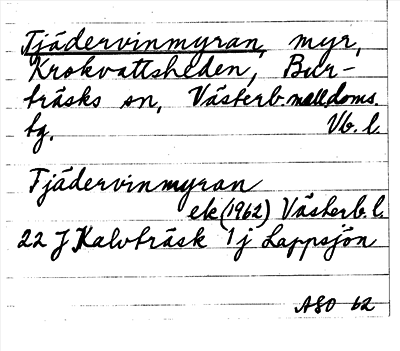 Tjädervinmyran, myr,
Krokvattsheden, Bur-
träsks sn, Västerb. mell doms.
tg. Vb. l.
Tjädervinmyran
ek (1962) Västerb. l.
22 J Kalvträsk 1 j Lappsjön
ASO 62